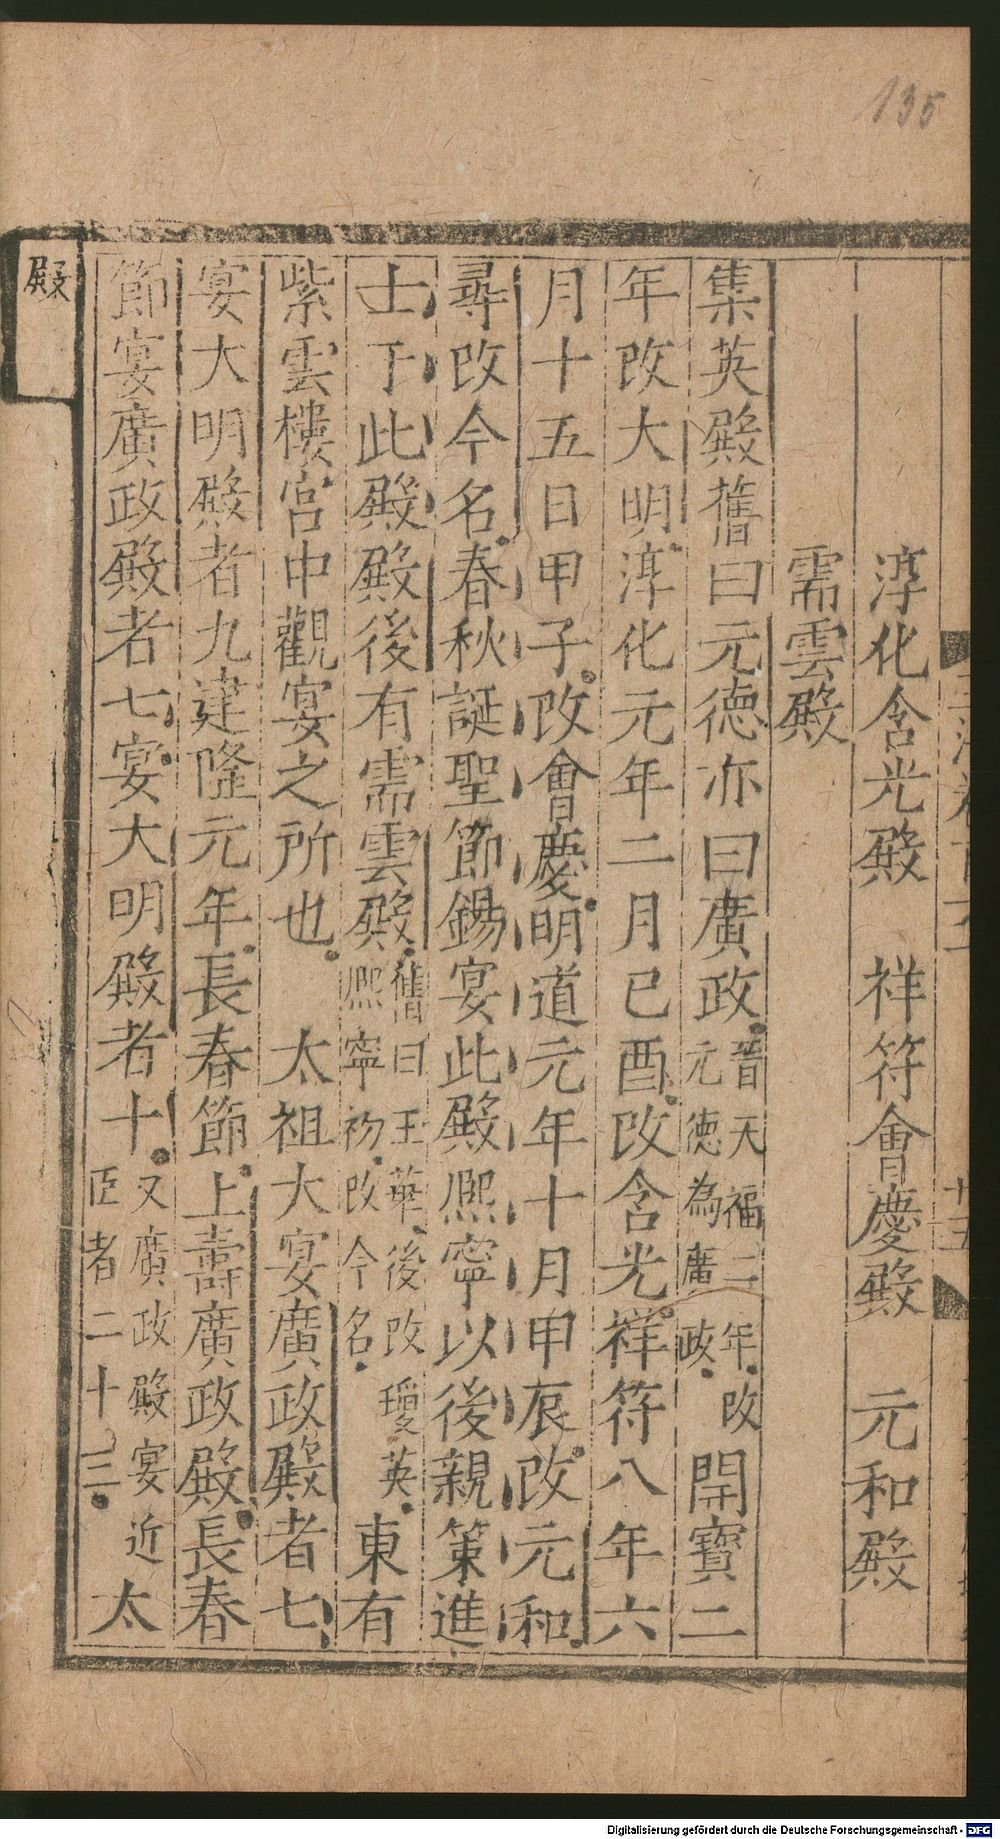 135
淳化含光殿　祥符會慶殿　元和殿
需雲殿
集英殿舊曰元德亦曰廣政晉天福二年改元德為廣政開寶二
年改大明淳化元年二月己酉改含光祥符八年六
月十五日甲子改會慶明道元年十月甲辰改元和
尋改今名春秋誕聖節錫宴此殿熙寧以後親策進
士于此殿殿後有需雲殿舊曰玉華後改瓊英熙寧初改今名東有
紫雲樓宮中觀宴之所也　太祖大宴廣政殿者七
宴大明殿者九建隆元年長春節上壽廣政殿長春
節宴廣政殿者七宴大明殿者十又廣政殿宴近臣者二十三太
殿
Digitalisierung gefördert durch die Deutsche Forschungsgemeinschaft - DFG